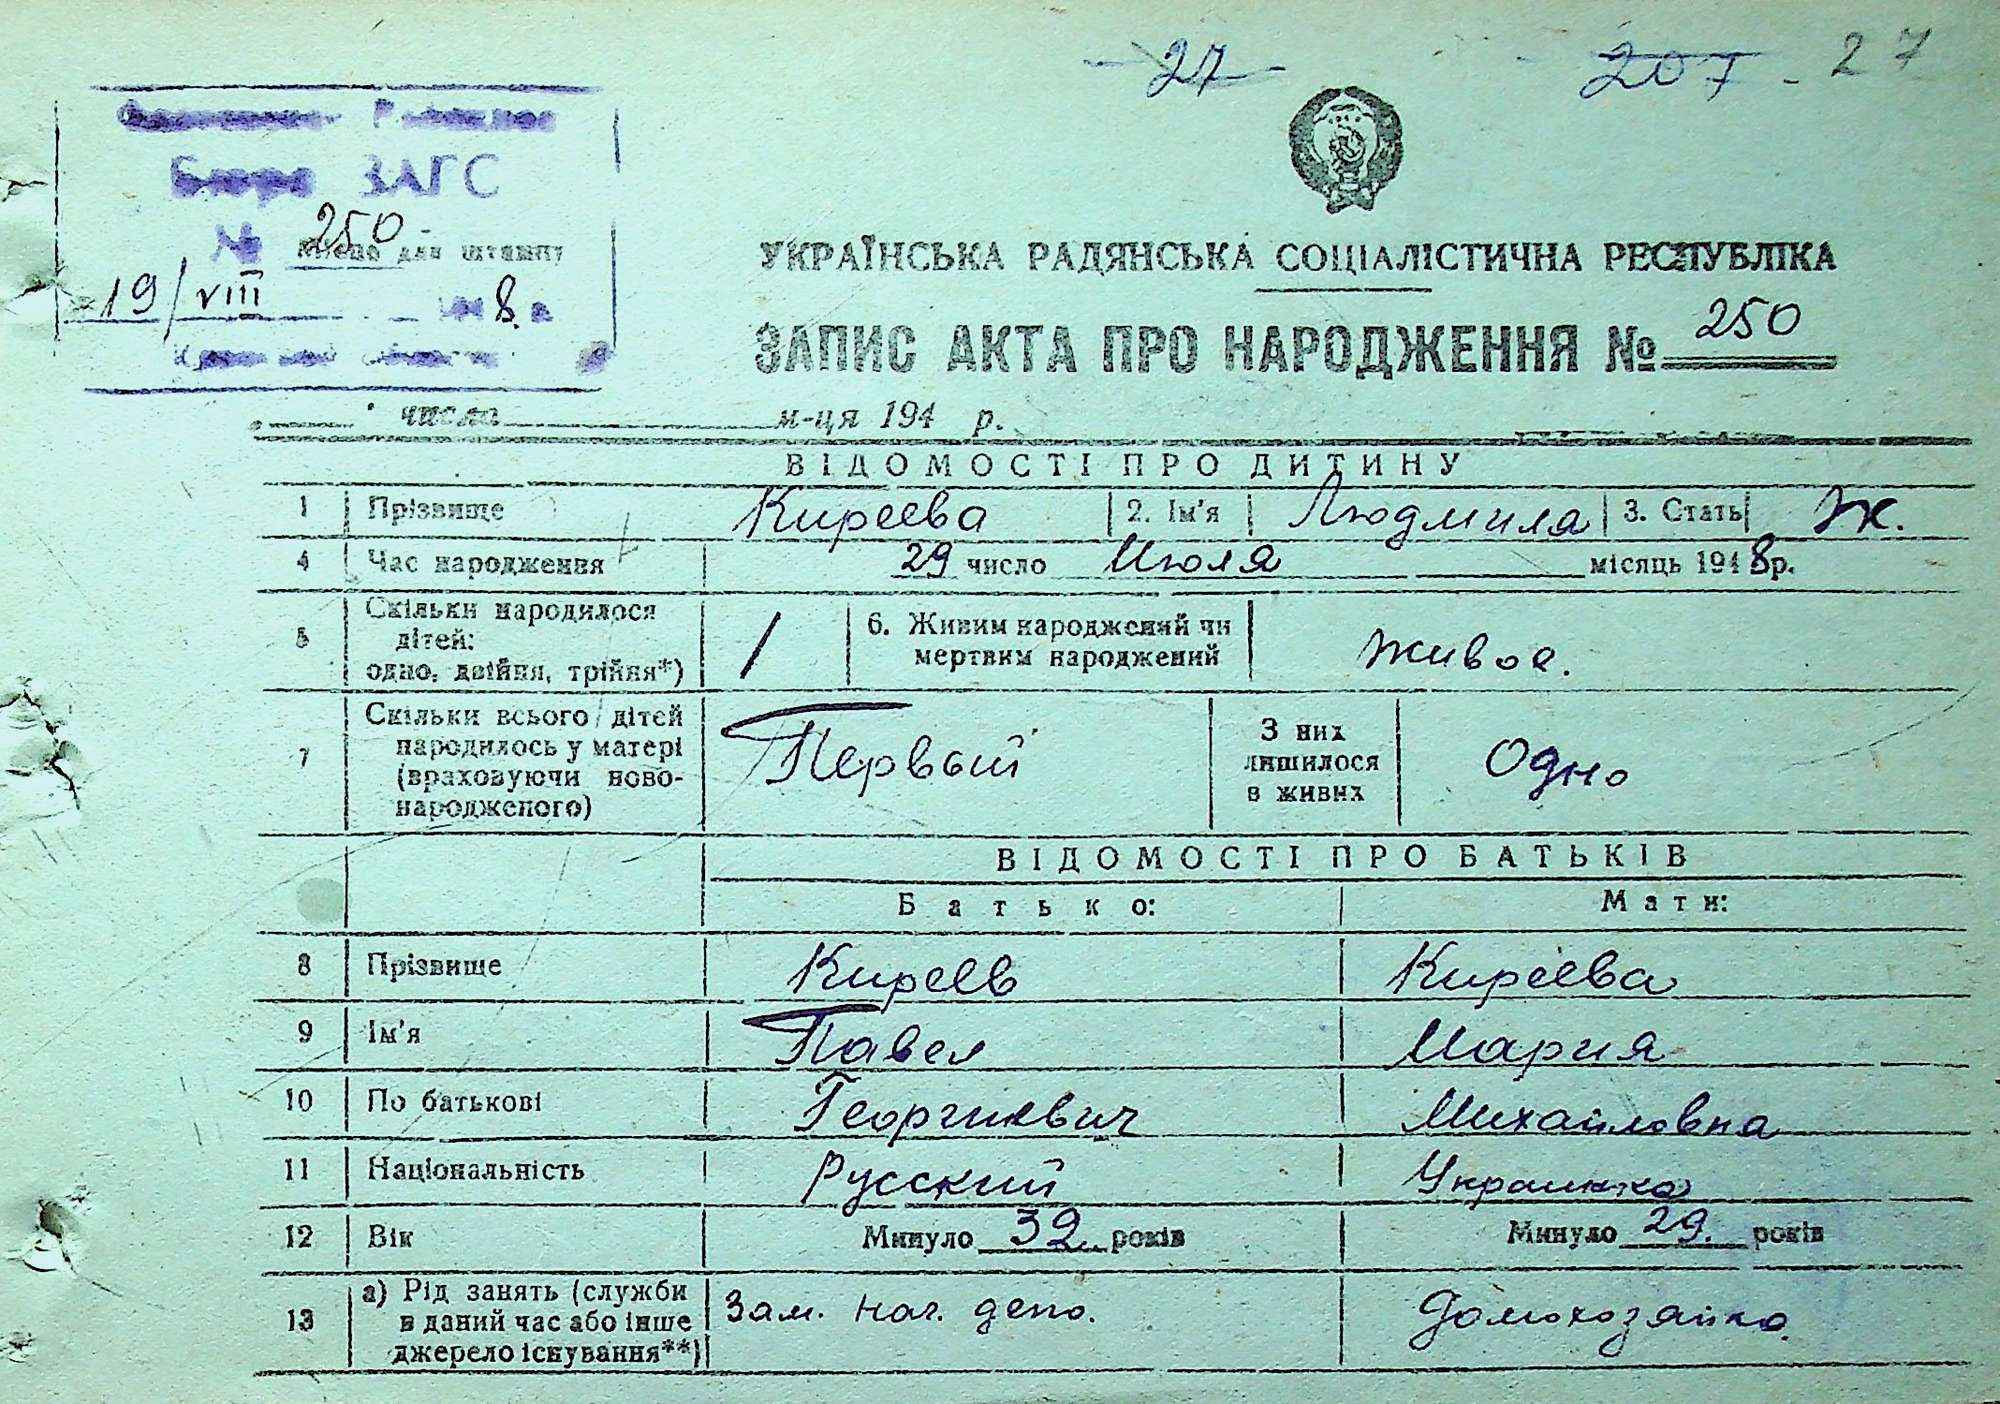 27 207 - 27
Бюро ЗАГС
№ 250 Місце для штампу
19/VIII 1948 г.
УКРАЇНСЬКА РАДЯНСЬКА СОЦІАЛІСТИЧНА РЕСПУБЛІКА
ЗАПИС АКТА ПРО НАРОДЖЕННЯ № 250
число м-ця 194 р.
ВІДОМОСТІ ПРО ДИТИНУ
1 Прізвище Киреева 2. Ім'я Людмила 3. Стать Ж.
4 Час народження 29 число Июля місяць 1948 р.
5 Скільки народилося дітей: одно, двійня, трійня*) 1 6. Живим народжений чи мертвим народжений Живое.
7 Скільки всього дітей народилось у матері (враховуючи ново-народженого) Первый З них лишилося в живих Одно
ВІДОМОСТІ ПРО БАТЬКІВ
Батько: Мати:
8 Прізвище Киреев Киреева
9 Ім'я Павел Мария
10 По батькові Георгиевич Михайловна
11 Національність Русский Украинка
12 Вік Минуло 32 років Минуло 29. років
13 а) Рід занять (служби в даний час або інше джерело існування**) Зам. нач. депо. Домохозяйка.